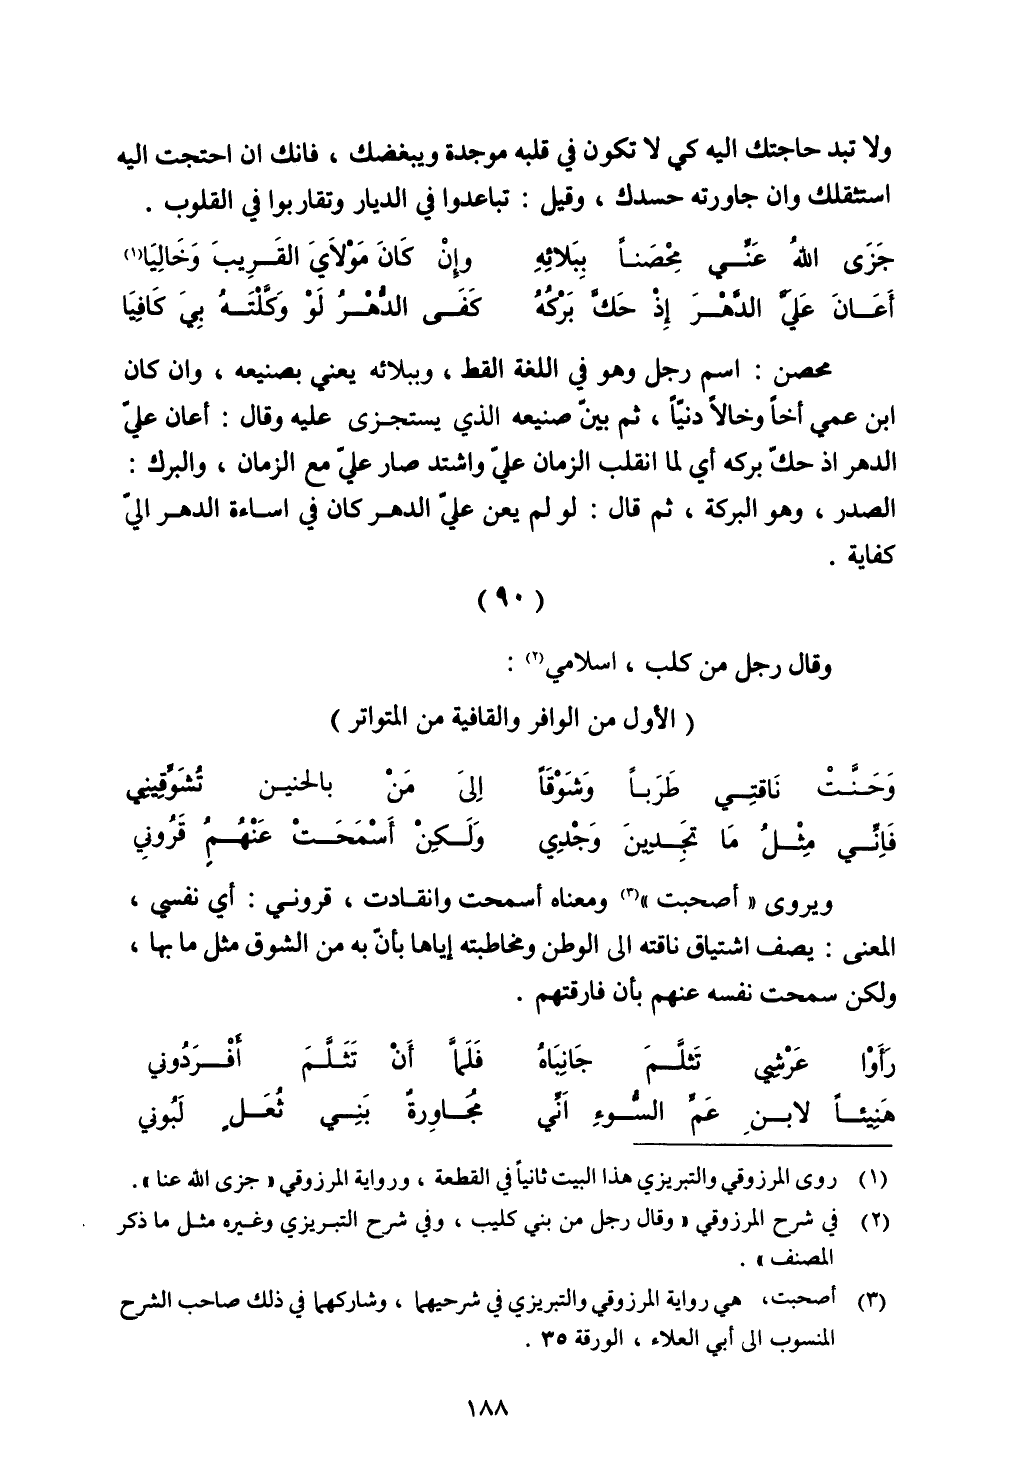 ولا تبد حاجتك اليه كي لا تكون في قلبه موجدة ويبغضك ، فانك ان احتجت اليه
استثقلك وان جاورته حسدك ، وقيل : تباعدوا في الديار وتقاربوا في القلوب .
جَزَى اللهُ عَنِّي مِحْصَناً بِبَلائِهِ وإِنْ كَانَ مَوْلاَيَ القَرِيبَ وَخَالِيَا(١)
أَعَانَ عَلَيَّ الدَّهْرَ إِذْ حَكَّ بَرْكُهُ كَفَى الدَّهْرُ لَوْ وَكَّلْتَهُ بِيَ كَافِيَا
محصن : اسم رجل وهو في اللغة القط ، وببلائه يعني بصنيعه ، وان كان
ابن عمي أخاً وخالاً دنيّاً ، ثم بينّ صنيعه الذي يستجزى عليه وقال : أعان عليّ
الدهر اذ حكّ بركه أي لما انقلب الزمان عليّ واشتد صار عليّ مع الزمان ، والبرك :
الصدر ، وهو البركة ، ثم قال : لو لم يعن عليّ الدهر كان في اساءة الدهر اليّ
كفاية .
( ٩٠ )
وقال رجل من كلب ، اسلامي(٢) :
( الأول من الوافر والقافية من المتواتر )
وَحَنَّتْ نَاقتِي طَرَباً وَشَوْقَاً إِلىَ مَنْ بالحنين تُشَوِّقِيني
فَإنِّي مِثْلُ مَا تَجِدِينَ وَجْدِي وَلَكِنْ أَسْمَحَتْ عَنْهُمُ قَرُونيِ
ويروى « أصحبت »(٣) ومعناه أسمحت وانقادت ، قروني : أي نفسي ،
المعنى : يصف اشتياق ناقته الى الوطن ومخاطبته إياها بأنّ به من الشوق مثل ما بها ،
ولكن سمحت نفسه عنهم بأن فارقتهم .
رَأَوْا عَرْشِي تَثلَّمَ جَانِبَاهُ فَلَماَّ أَنْ تَثَلَّمَ أَفْرَدُوني
هَنِيئاً لابنِ عَمِّ السُّوءِ اَنِّي مُجَاوِرةٌ بَنِي ثُعَلٍ لَبُوني
(١) روى المرزوقي والتبريزي هذا البيت ثانياً في القطعة ، ورواية المرزوقي « جزى الله عنا » .
(٢) في شرح المرزوقي « وقال رجل من بني كليب ، وفي شرح التبريزي وغيره مثل ما ذكر
المصنف » .
(٣) أصحبت، هي رواية المرزوقي والتبريزي في شرحيهما ، وشاركهما في ذلك صاحب الشرح
المنسوب الى أبي العلاء ، الورقة ٣٥ .
١٨٨